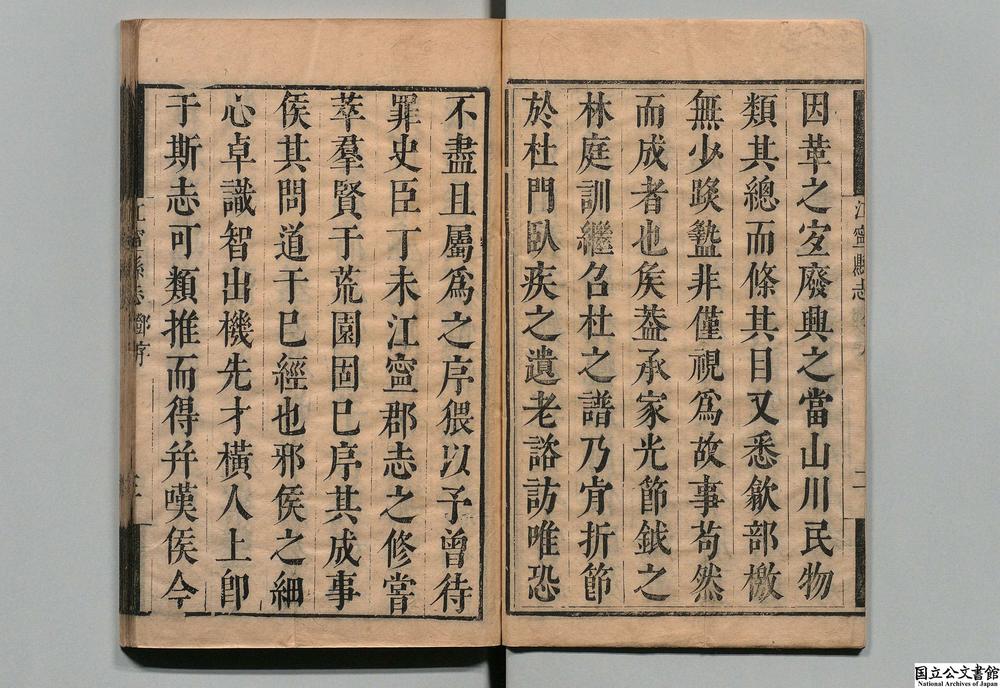 因革之宜廢興之當山川民物
類其總而條其目又悉歙部檄
無少踰蟄非僅視爲故事苟然
而成者也矦葢承家光節鉞之
林庭訓繼召杜之譜乃肯折節
於杜門臥疾之遺老諮訪唯恐
不盡且屬爲之序猥以予曾待
罪史臣丁未江寧郡志之修嘗
萃羣賢于荒園固已序其成事
矦其問道于已經也邪矦之細
心卓識智出機先才橫人上卽
于斯志可類推而得幷嘆矦今
江寧縣志
江寧縣志 序
国立公文書館
National Archives of Japan